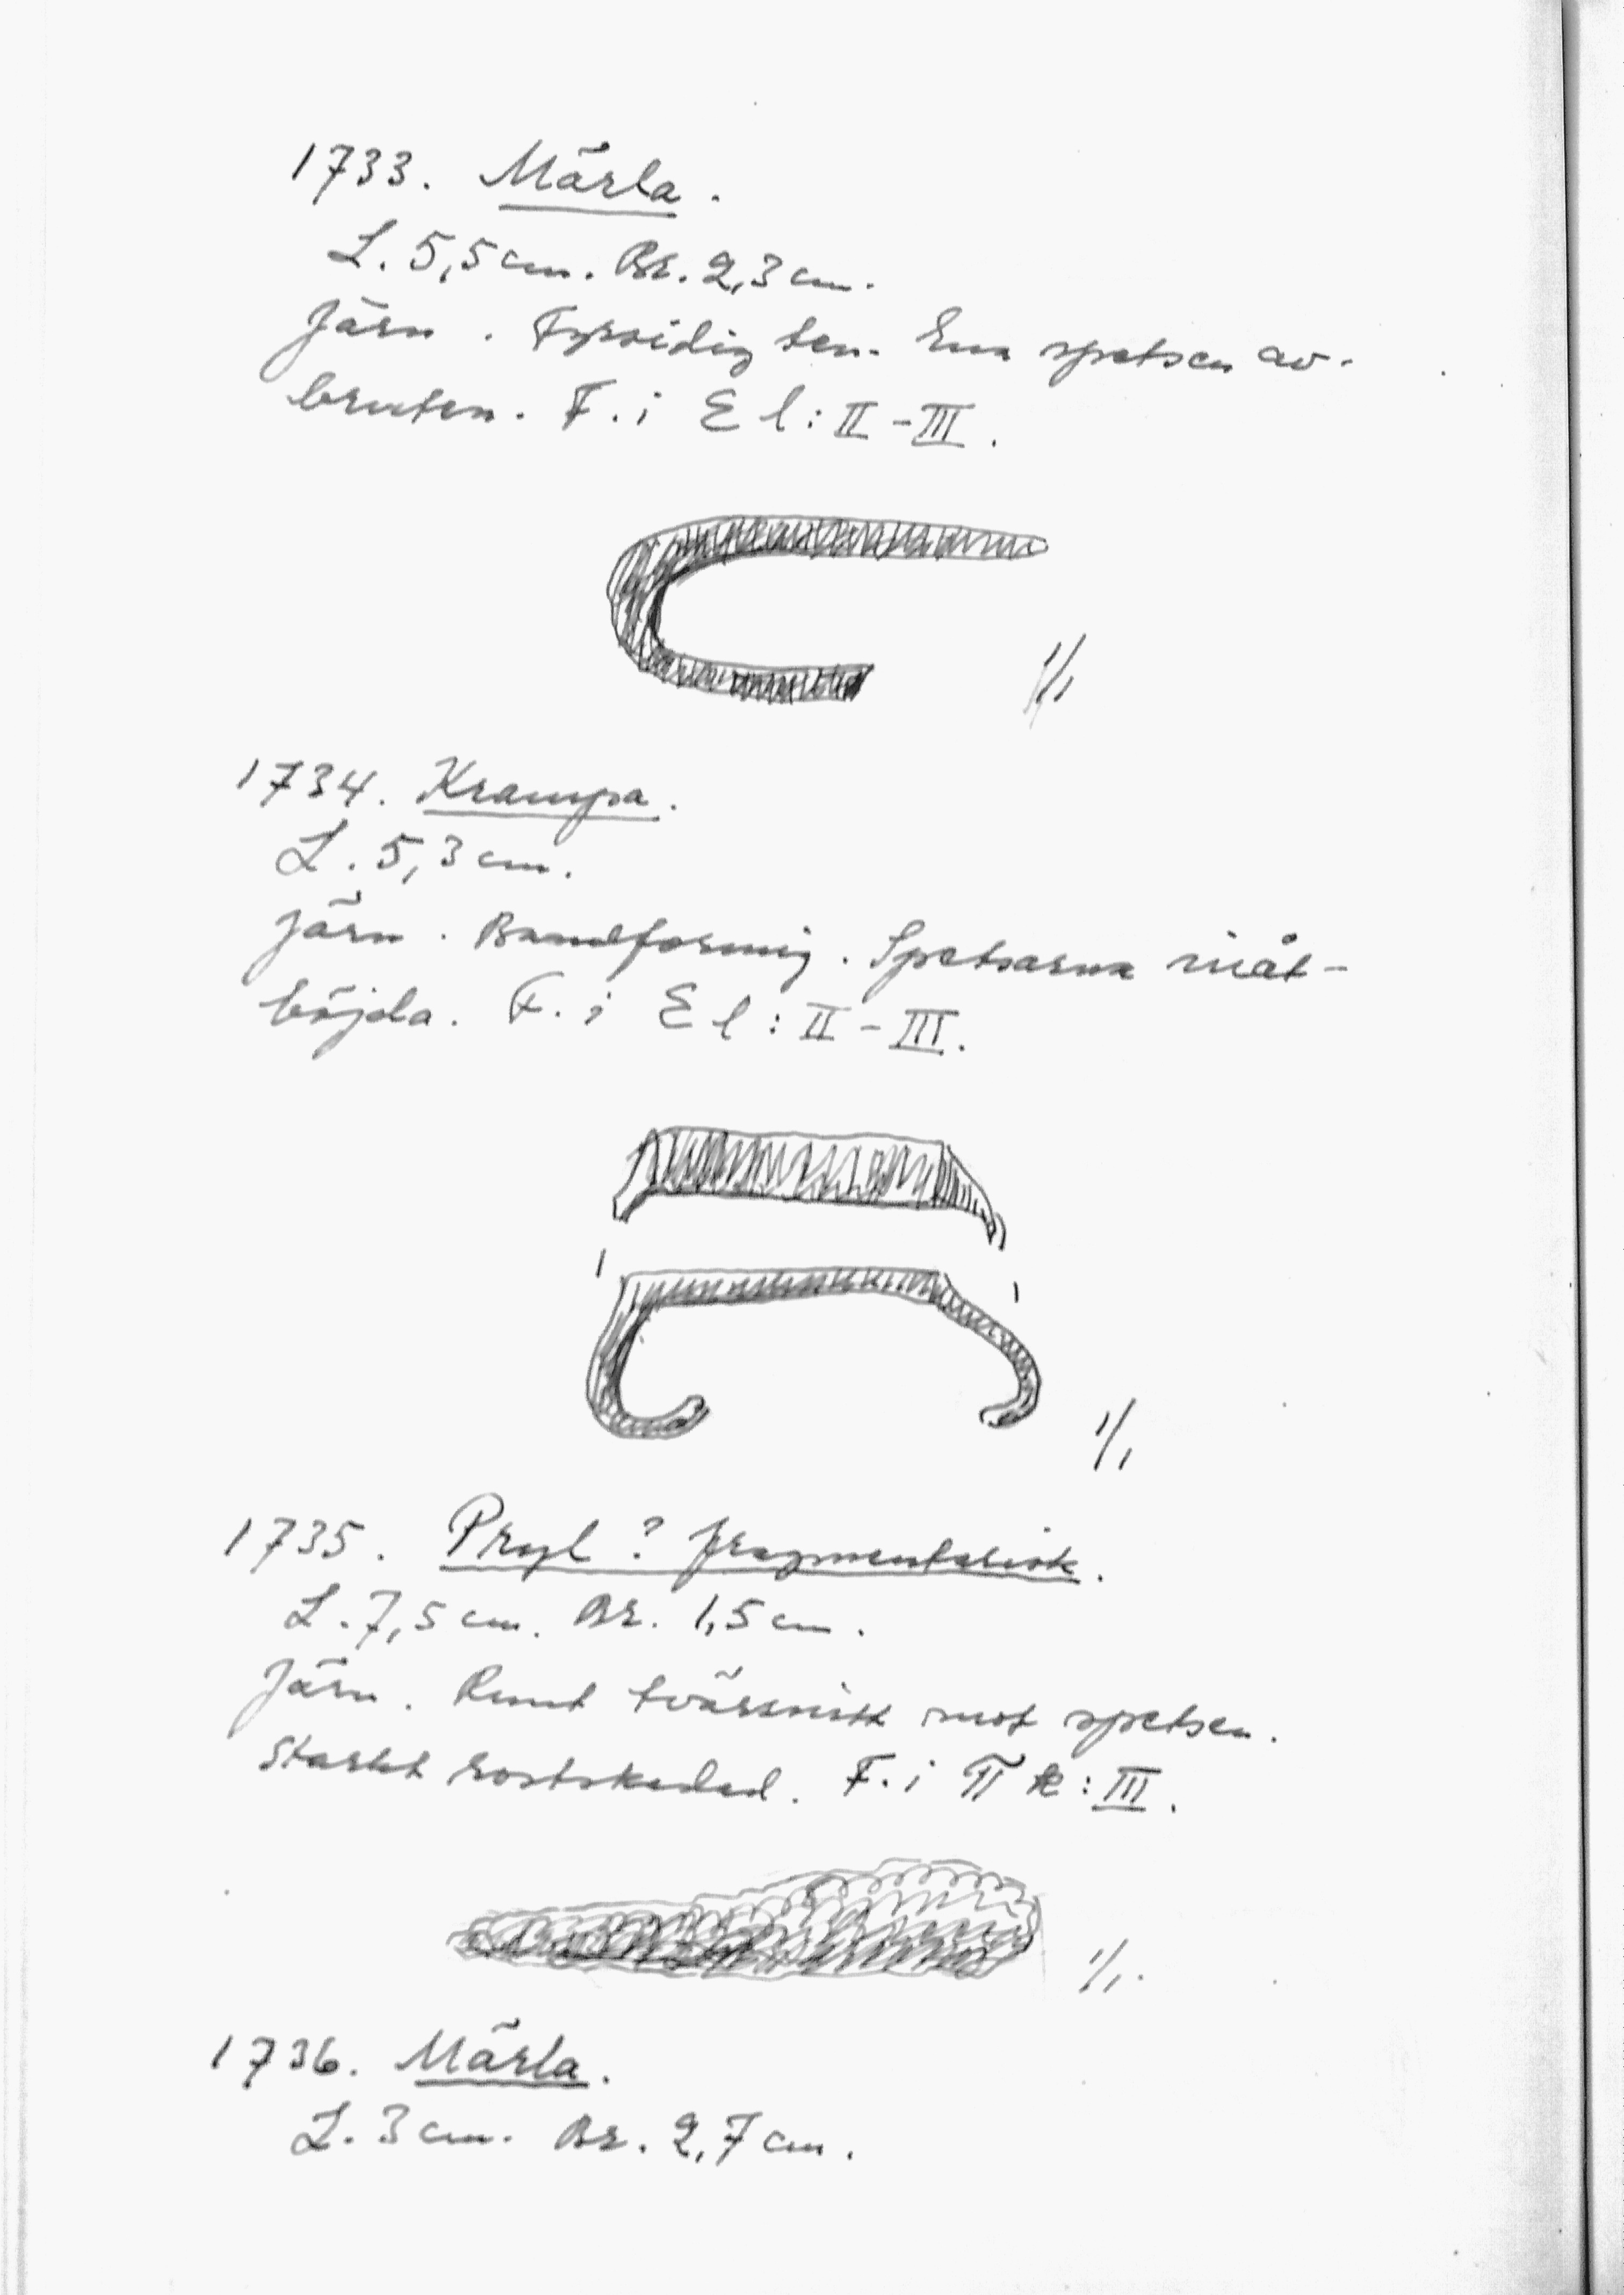 1733. Märla.
L. 5,5 cm. Br. 2,3 cm.
Järn. Fyrsidig ten. Ena spetsen av-
bruten. F. i E l : II - III.
1/1
1734. Krampa.
L. 5,3 cm.
Järn. Bandformig. Spetsarna inåt-
böjda. F. i E l : II - III.
1/1
1735. Pryl? fragmentarisk.
L. 7,5 cm. Br. 1,5 cm.
Järn. Runt tvärsnitt mot spetsen.
Starkt rostskadad. F. i : III.
1/1.
1736. Märla.
L. 3 cm. Br. 2,7 cm.